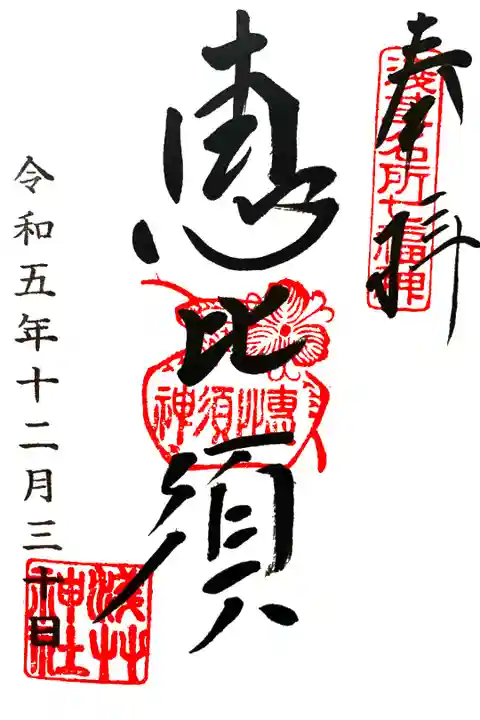 奉拝
浅草名所七福神
恵比須
恵比須神
令和五年十二月三十日
浅草神社